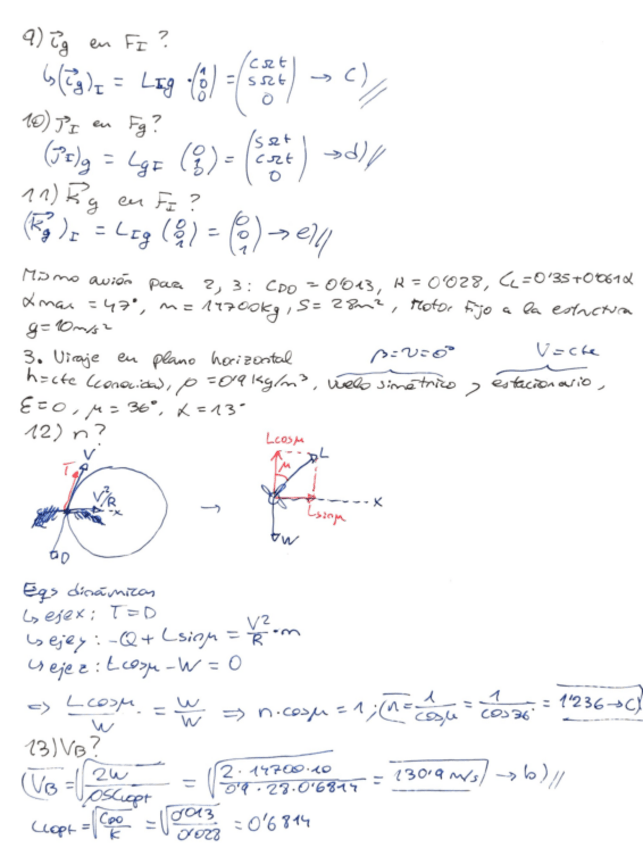 9) i⃗g en FI ?
↳ (i⃗g)I = LIg · (1 0 0) = (cΩt sΩt 0) → c)//
10) j⃗I en Fg?
(j⃗I)g = LgI (0 1 0) = (sΩt cΩt 0) → d)//
11) k⃗g en FI ?
(k⃗g)I = LIg (0 0 1) = (0 0 1) → e)//
Mismo avión para 2, 3: CD0 = 0'013, K = 0'028, CL = 0'35+0'061α
αmax = 47°, m = 14700kg, S = 28m², Motor fijo a la estructura
g = 10m/s²
3. Viraje en plano horizontal β=ν=0° V=cte
h=cte (conocida), ρ = 0'9 kg/m³, vuelo simétrico y estacionario,
ε=0, μ = 36°, α = 13°
12) n?
Lcosμ
L
μ
T
V
V²/R
x
→
x
Lsinμ
D
W
Eqs dinámicas
↳ eje x: T = D
↳ eje y: -Q + L sin μ = V²/R · m
↳ eje z: L cos μ - W = 0
⇒ L cos μ / W = W/W ⇒ n·cos μ = 1; n = 1/cos μ = 1/cos 36 = 1'236 → c)
13) VB?
VB = √(2W/ρSCLopt) = √(2·14700·10/0'9·28·0'6814) = 130'9 m/s → b)//
CLopt = √(CD0/K) = √(0'013/0'028) = 0'6814